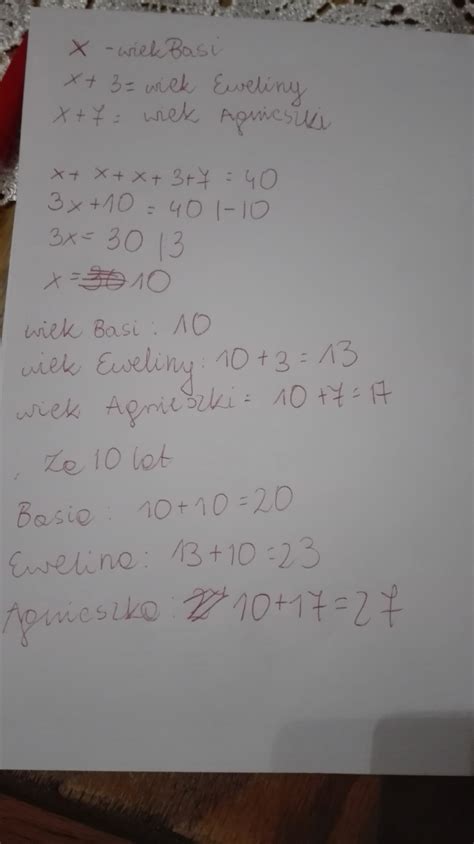 x - wiek Basi
x + 3 = wiek Eweliny
x + 7 = wiek Agnieszki
x + x + x + 3 + 7 = 40
3x + 10 = 40 | - 10
3x = 30 | 3
x = 30 10
wiek Basi : 10
wiek Eweliny : 10 + 3 = 13
wiek Agnieszki = 10 + 7 = 17
Za 10 lat
Basia : 10 + 10 = 20
Ewelina : 13 + 10 = 23
Agnieszka : 10 + 17 = 27